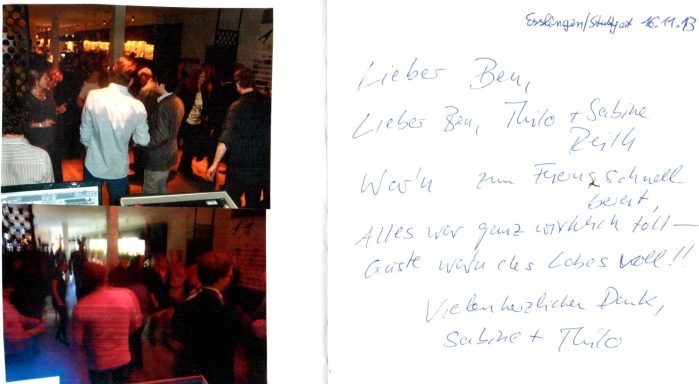 Esslingen/Stuttgart 16.11.13
Lieber Ben,
Lieber Ben, Thilo + Sabine
Reith
War'n zum Feiern schnell
bereit,
Alles war ganz wirklich toll –
Gäste war'n des Lobes voll!!
Vielen herzlichen Dank,
Sabine + Thilo